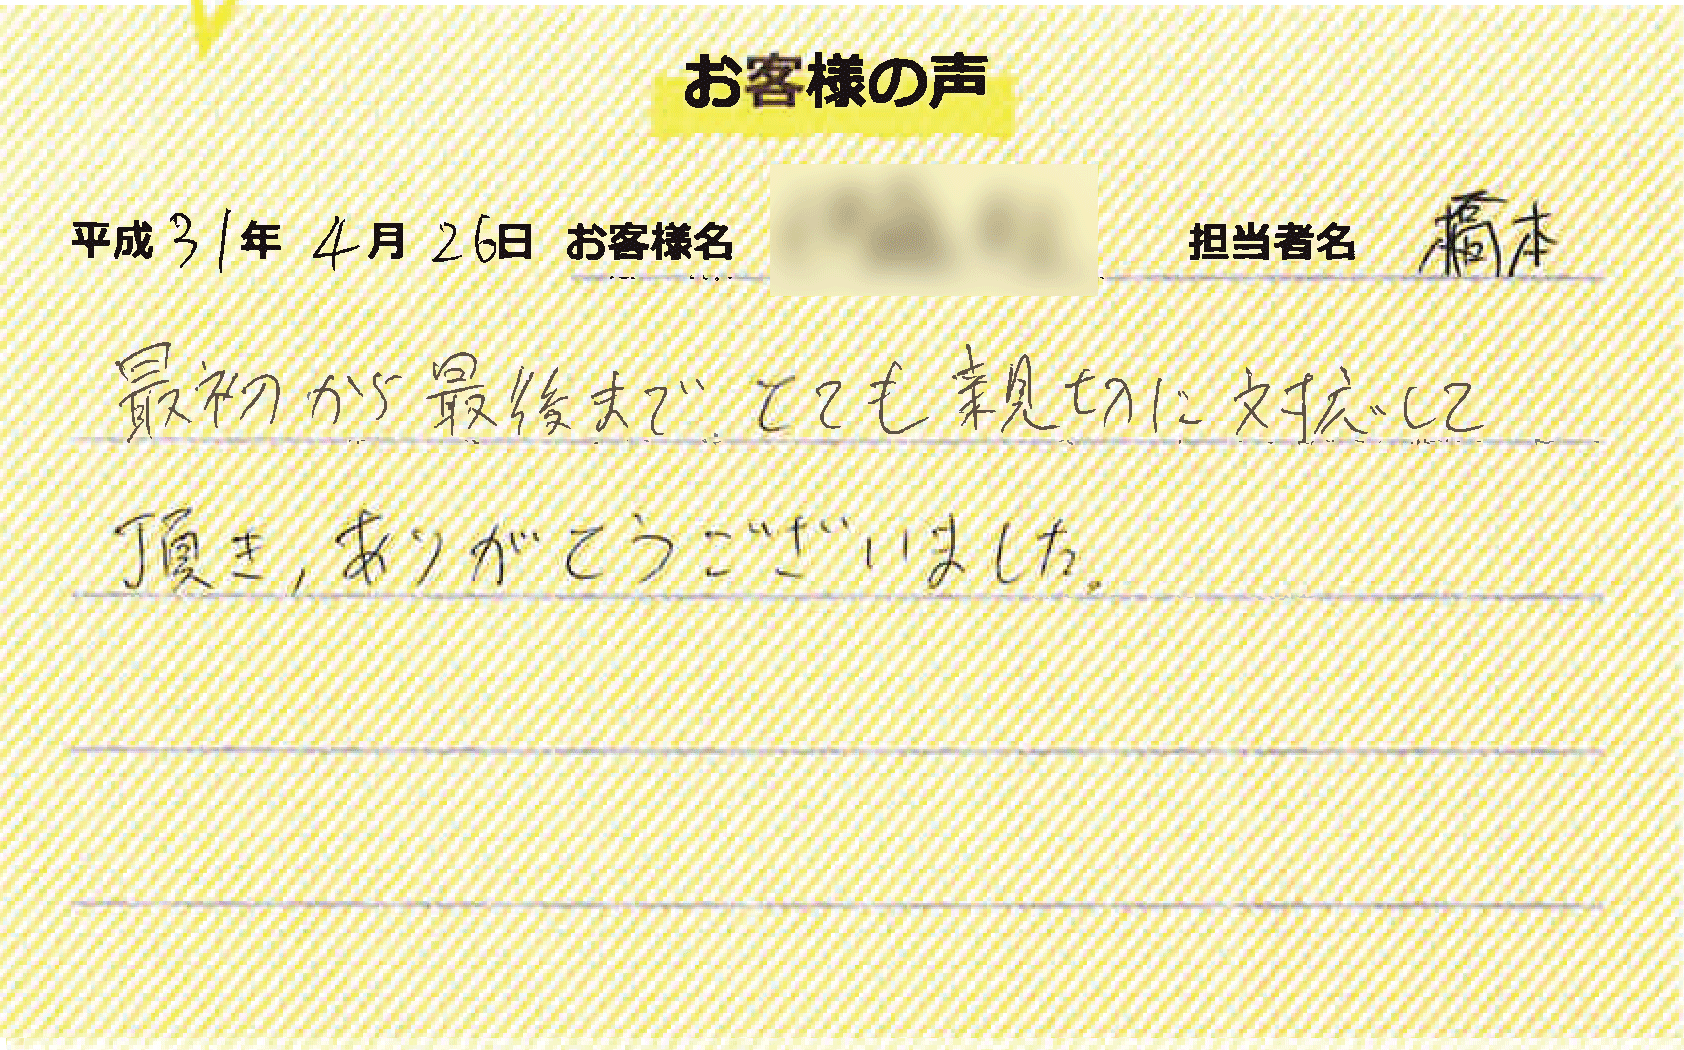 お客様の声
平成31年4月26日 お客様名 担当者名 橋本
最初から最後まで、とても親切に対応して
頂き、ありがとうございました。